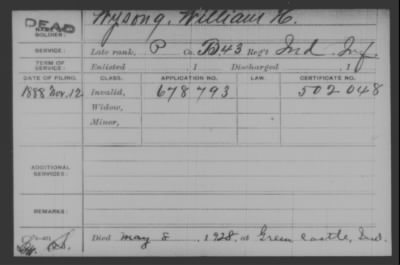 DEAD
NAME OF SOLDIER: Wysong, William H.
SERVICE: Late rank, P Co. B 43 Reg't Ind. Inf.
TERM OF SERVICE: Enlisted , 1 Discharged , 1
DATE OF FILING. CLASS. APPLICATION NO. LAW. CERTIFICATE NO.
1888 Nov. 12 Invalid, 678 793 502 048
Widow,
Minor,
ADDITIONAL SERVICES:
REMARKS:
Died May 8 , 1928, at Green Castle, Ind.